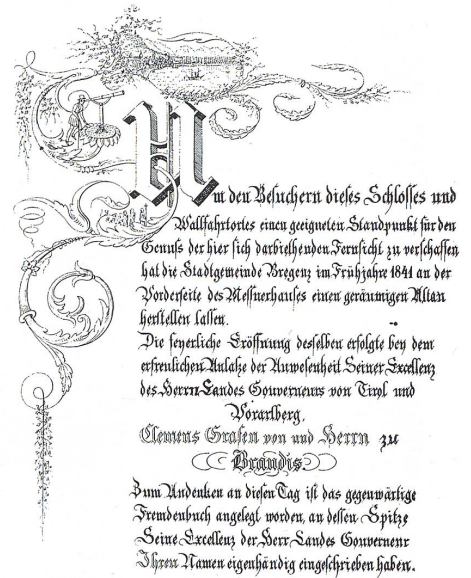 Um den Besuchern dieses Schlosses und
Wallfahrtortes einen geeigneten Standpunkt für den
Genuss der hier sich darbiethenden Fernsicht zu verschaffen
hat die Stadtgemeinde Bregenz im Frühjahre 1841 an der
Vorderseite des Messnerhauses einen geräumigen Altan
herstellen lassen.
Die feyerliche Eröffnung desselben erfolgte bey dem
erfreulichen Anlaße der Anwesenheit Seiner Excellenz
des Herrn Landes Gouverneurs von Tirol und
Vorarlberg,
Clemens Grafen von und Herrn zu
Brandis
Zum Andenken an diesen Tag ist das gegenwärtige
Fremdenbuch angelegt worden, an dessen Spitze
Seine Excellenz der Herr Landes Gouverneur
Ihren Namen eigenhändig eingeschrieben haben.